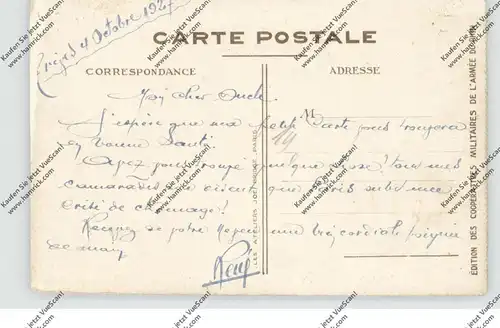 4 Octobre 1927
CARTE POSTALE
CORRESPONDANCE
ADRESSE
Mon cher Oncle.
M
J'espère que ma petite Carte vous trouvera
en bonne Santé.
Avez vous coupé quelque chose! tous mes
camarades me disent que
de chômage!
Recevez de votre Neveu une très cordiale poignée
de main
René
LES ATELIERS JOÉ PARIS
ÉDITION DES COOPÉRATIVES MILITAIRES DE L'ARMÉE
Kaufen Sie jetzt VueScan!
www.hamrick.com